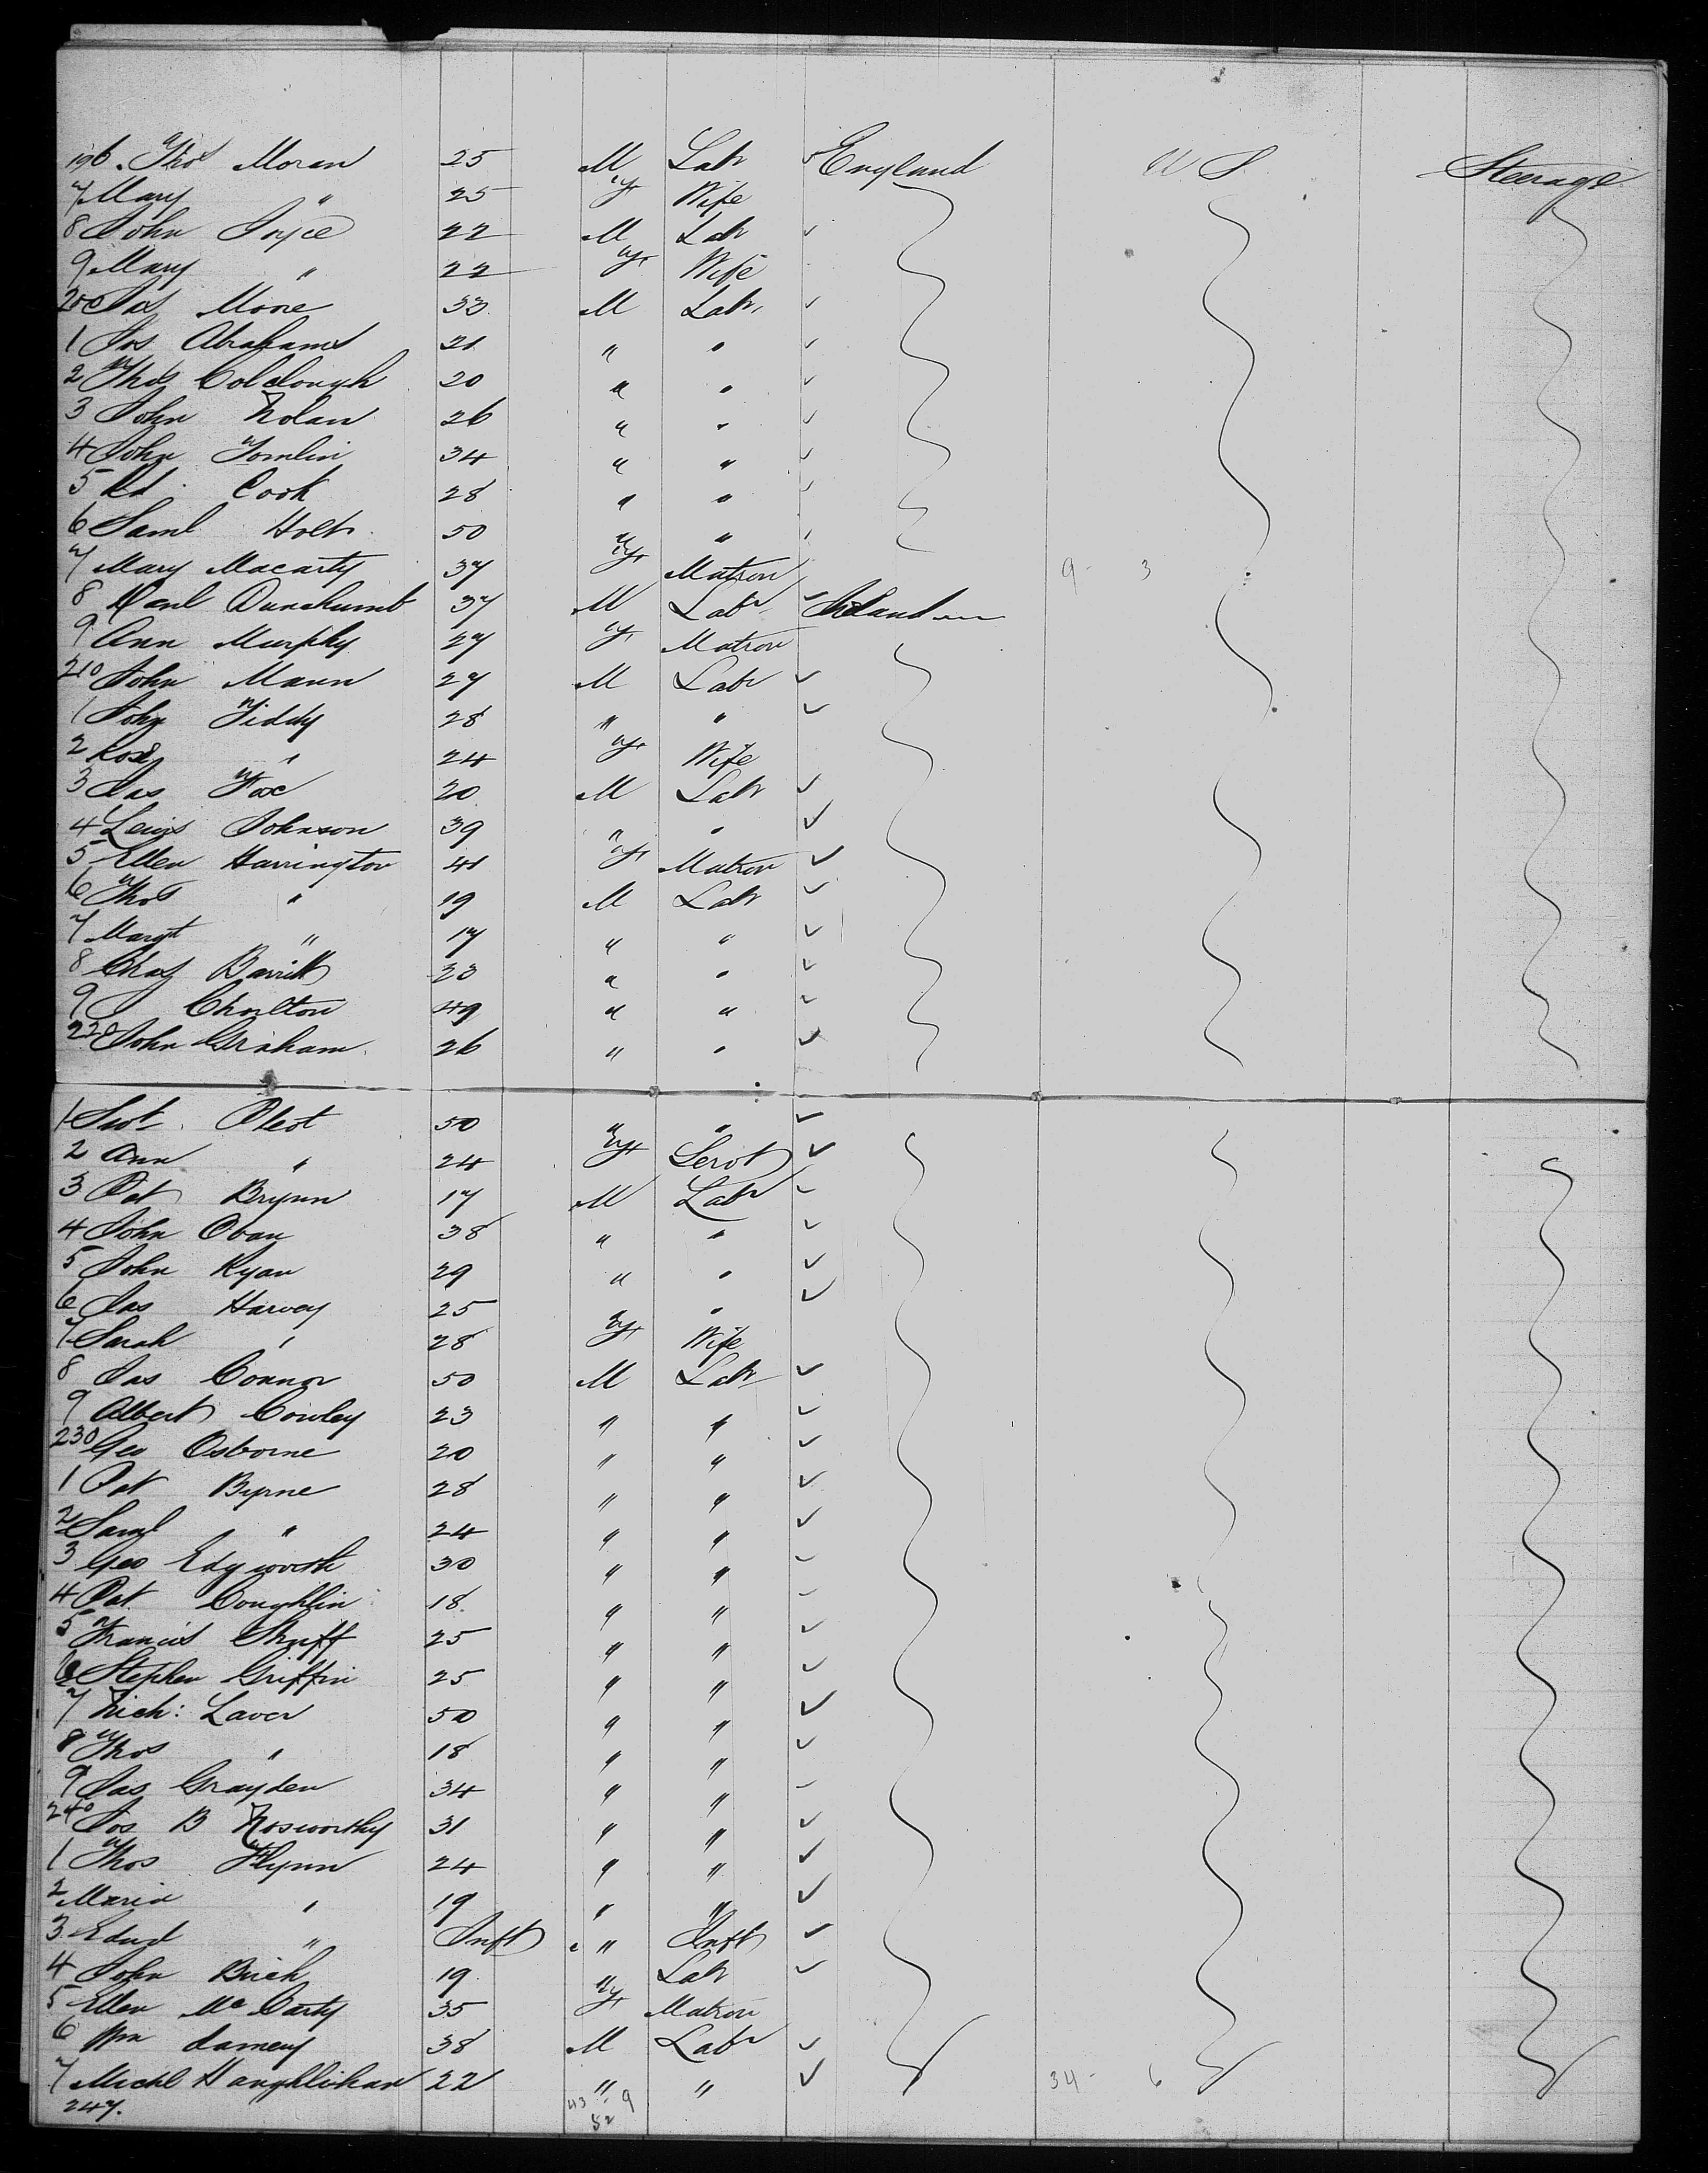 196 Thos Moran 25 M Labr England U S Steerage
7 Mary " 25 F Wife
8 John Joyce 22 M Labr
9 Mary " 22 F Wife
200 Jas Moore 33 M Labr
1 Jos Abrahams 21 " "
2 Thos Colclough 20 " "
3 John Nolan 26 " "
4 John Tomlin 34 " "
5 Rd Cook 28 " "
6 Saml Holt 50 " "
7 Mary Macarty 37 F Matron 9 - 3
8 Danl 37 M Labr Ireland
9 Ann Murphy 27 F Matron
210 John Mann 27 M Labr
1 John Tiddy 28 " "
2 Rose " 24 F Wife
3 Jas Fox 20 M Labr
4 Lewis Johnson 39 " "
5 Ellen Harrington 41 F Matron
6 Thos " 19 M Labr
7 Margt " 17 " "
8 Chas Barritt 23 " "
9 J Chorlton 49 " "
220 John Graham 26 " "
1 50 " "
2 Ann " 24 F Servt
3 Pat Brynn 17 M Labr
4 John Oban 38 " "
5 John Ryan 29 " "
6 Jas Harvey 25 " "
7 Sarah " 28 F Wife
8 Jas Connor 50 M Labr
9 Albert Cowley 23 " "
230 Geo Osborne 20 " "
1 Pat Byrne 28 " "
2 Saml " 24 " "
3 Geo Edgworth 30 " "
4 Pat Coughlin 18 " "
5 Francis 25 " "
6 Stephen Griffin 25 " "
7 Nich: Laver 50 " "
8 Thos " 18 " "
9 Jas Grayden 34 " "
240 Jos B Nosworthy 31 " "
1 Thos Flynn 24 " "
2 Maria " 19 " "
3 Edwd " Inft " Inft
4 John Birch 19 " Labr
5 Ellen McCarty 35 F Matron
6 Wm Lameny 38 M Labr
7 Michl Haughlihan 22 " " 34 - 6
247. 43 - 9
52